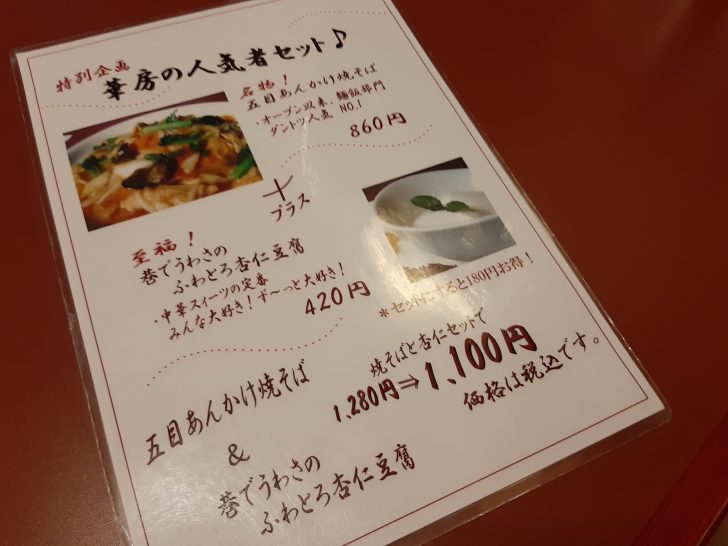 特別企画
華房の人気者セット♪
名物！
五目あんかけ焼そば
・オープン以来、麺飯部門
ダントツ人気 NO.1
860円
＋
プラス
至福！
巷でうわさの
ふわとろ杏仁豆腐
・中華スイーツの定番
みんな大好き！ず～っと大好き！
420円
＊セットにすると180円お得！
焼そばと杏仁セットで
1,280円⇒1,100円
価格は税込です。
五目あんかけ焼そば
＆
巷でうわさの
ふわとろ杏仁豆腐